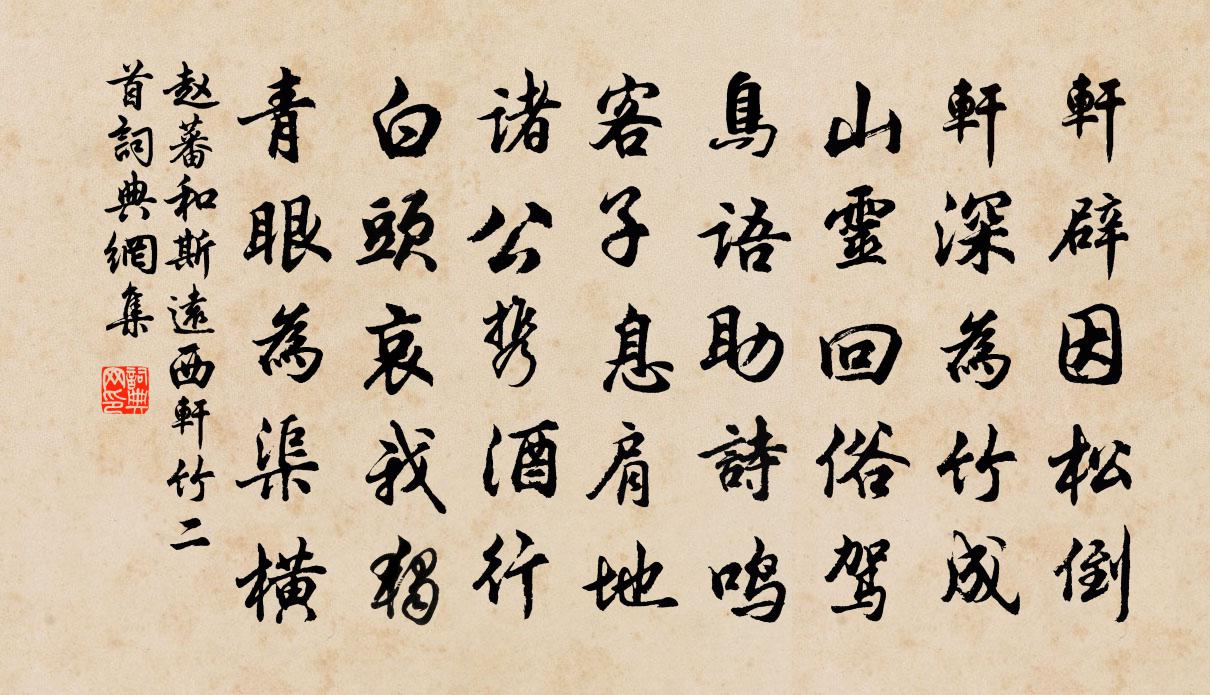 軒辟因松倒
軒深為竹成
山靈回俗駕
鳥語助詩鸣
客子息肩地
诸公携酒行
白頭哀我獨
青眼為渠橫
赵蕃和斯遠西軒竹二
首詞典網集
詞典网印